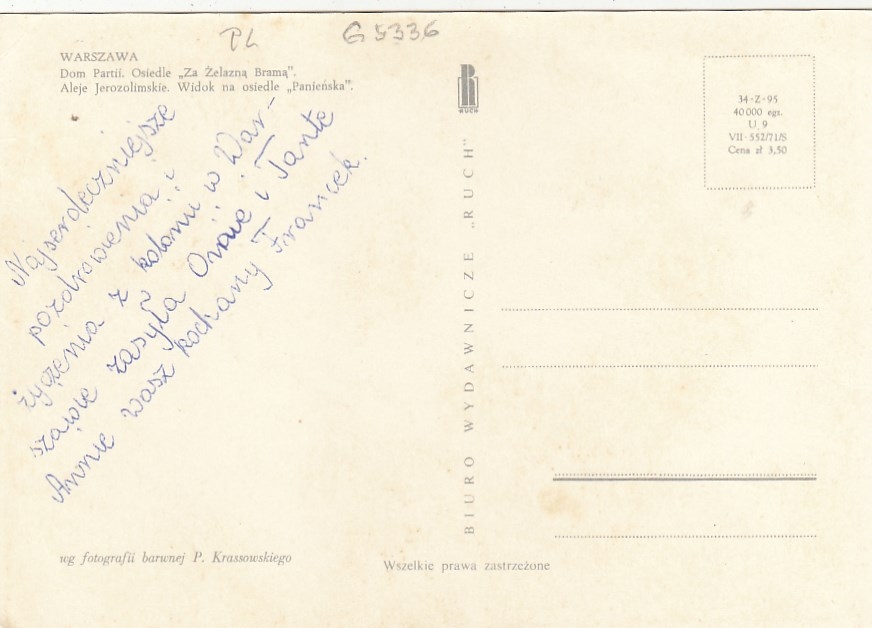 PL
G 5336
WARSZAWA
Dom Partii. Osiedle „Za Żelazną Bramą”.
Aleje Jerozolimskie. Widok na osiedle „Panieńska”.
Najserdeczniejsze
pozdrowienia i
życzenia z kolonii w War-
szawie zasyła Omie i Tante
Annie wasz kochany Franciek.
wg fotografii barwnej P. Krassowskiego
RUCH
BIURO WYDAWNICZE „RUCH”
Wszelkie prawa zastrzeżone
34-Z-95
40 000 egz.
U 9
VII-552/71/S
Cena zł 3,50